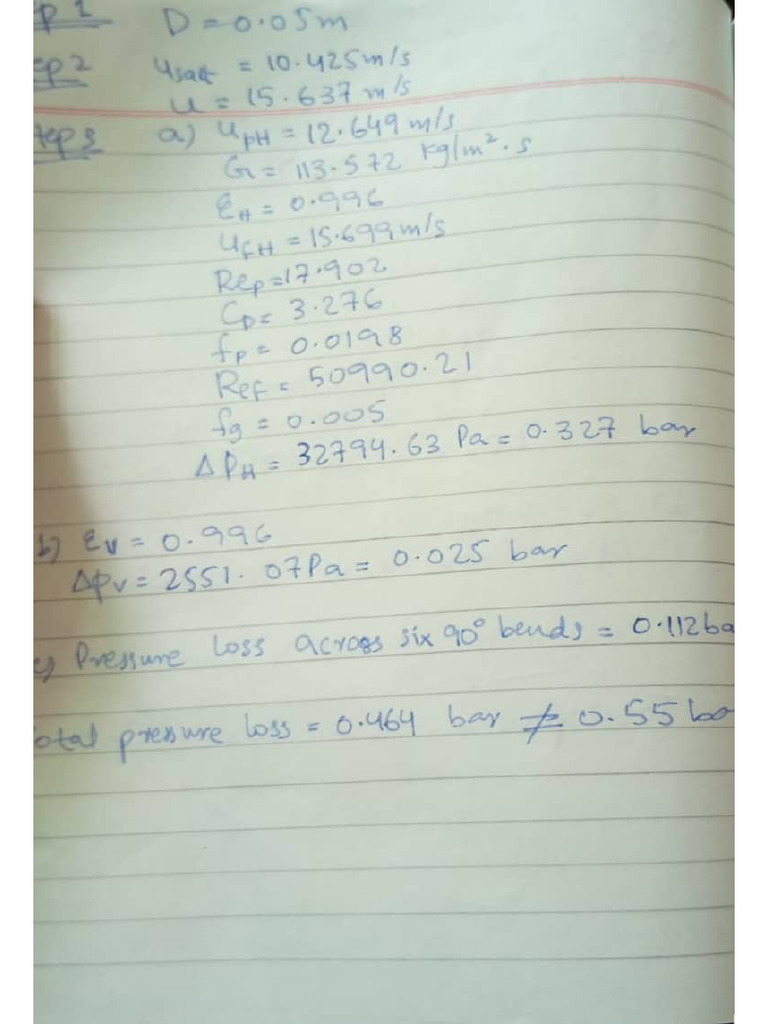 p 1 D = 0.05m
ep 2 Usalt = 10.425m/s
u = 15.637 m/s
tep 3 a) UpH = 12.649 m/s
G = 113.572 kg/m².s
εH = 0.996
UfH = 15.699m/s
Rep = 17.902
CD = 3.276
fp = 0.0198
Ref = 50990.21
fg = 0.005
ΔPH = 32794.63 Pa = 0.327 bar
b) εv = 0.996
Δpv = 2551.07Pa = 0.025 bar
c) Pressure loss across six 90° bends = 0.112ba
otal pressure loss = 0.464 bar ≠ 0.55 ba